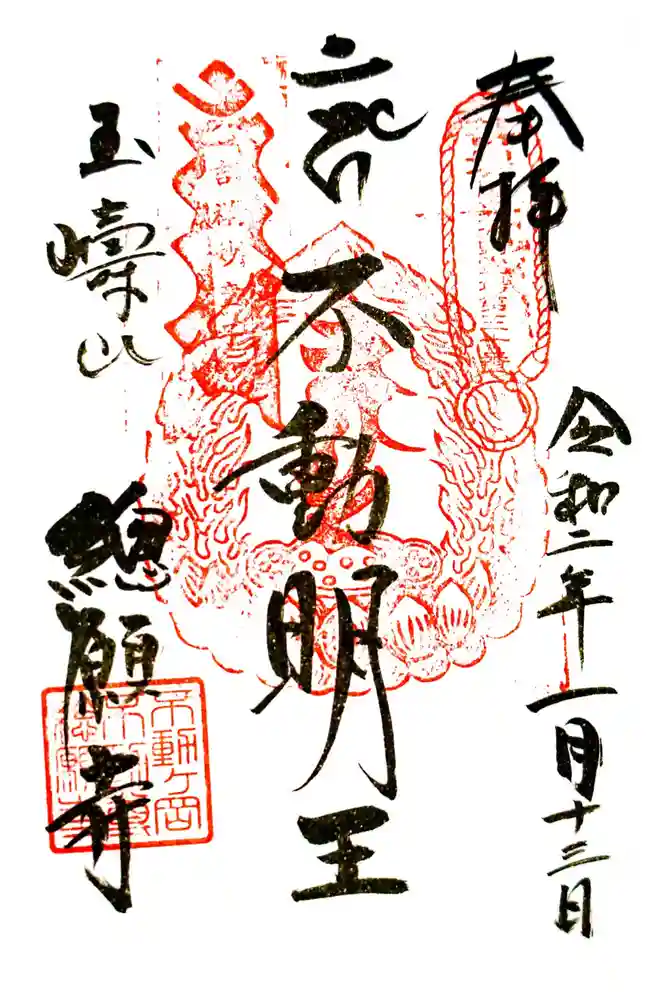 奉拝
令和二年一月十三日
不動明王
玉嶹山
總願寺
不動ヶ岡
不動尊
總願寺